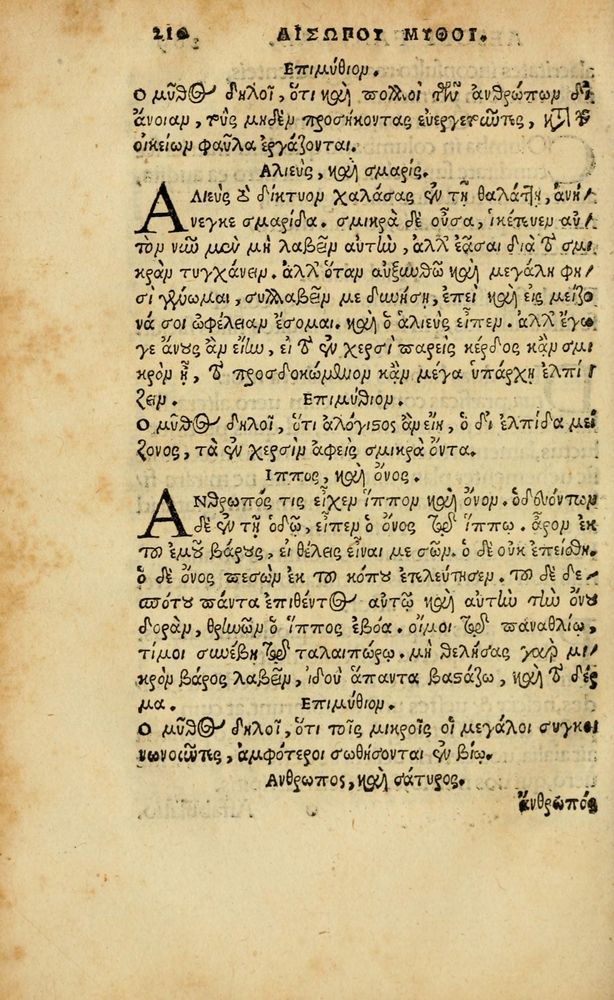 210 ΑΙΣΩΠΟΥ ΜΥΘΟΙ.
Επιμύθιον.
Ο μῦθος δηλοῖ, ὅτι καὶ πολλοὶ τῶν ἀνθρώπων δι'
ἄνοιαν, τοὺς μηδὲν προσήκοντας εὐεργετοῦντες, κατὰ τῶν
οἰκείων φαῦλα ἐργάζονται.
Αλιεὺς, καὶ σμαρίς.
ΑΛΙΕὺς τὸ δίκτυον χαλάσας ἐν τῇ θαλάττῃ, ἀνή
νεγκε σμαρίδα. σμικρὰ δὲ οὖσα, ἱκέτευεν αὐ
τὸν νῦν μὲν μὴ λαβεῖν αὐτὴν, ἀλλ' ἐᾶσαι διὰ τὸ σμι
κρὰν τυγχάνειν. ἀλλ' ὅταν αὐξηνθῶ καὶ μεγάλη φη
σὶ γένωμαι, συλλαβεῖν με δυνήσῃ, ἐπεὶ καὶ εἰς μείζο
νά σοι ὠφέλειαν ἔσομαι. καὶ ὁ ἁλιεὺς εἶπεν. ἀλλ' ἔγω
γε ἄνους ἂν εἴην, εἰ τὸ ἐν χερσὶ παρεὶς κέρδος κἂν σμι
κρὸν ᾖ, τὸ προσδοκώμενον κἂν μέγα ὑπάρχῃ ἐλπί
ζειν. Επιμύθιον.
Ο μῦθος δηλοῖ, ὅτι ἀλόγιστος ἂν εἴη, ὁ δι' ἐλπίδα μεί
ζονος, τὰ ἐν χερσὶν ἀφεὶς σμικρὰ ὄντα.
Ιππος, καὶ ὄνος.
ΑΝθρωπός τις εἶχεν ἵππον καὶ ὄνον. ὁδευόντων
δὲ ἐν τῇ ὁδῷ, εἶπεν ὁ ὄνος τῷ ἵππῳ. ἆρον ἐκ
τοῦ ἐμοῦ βάρους, εἰ θέλεις εἶναί με σῶν. ὁ δὲ οὐκ ἐπείσθη.
ὁ δὲ ὄνος πεσὼν ἐκ τοῦ κόπου ἐτελεύτησεν. τοῦ δὲ δε
σπότου πάντα ἐπιθέντος αὐτῷ καὶ αὐτὴν τὴν ὄνου
δορὰν, θρηνῶν ὁ ἵππος ἐβόα. οἴμοι τῷ παναθλίῳ,
τίμοι συνέβη τῷ ταλαιπώρῳ. μὴ θελήσας γὰρ μι
κρὸν βάρος λαβεῖν, ἰδοὺ ἅπαντα βαστάζω, καὶ τὸ δέρ
μα. Επιμύθιον.
Ο μῦθος δηλοῖ, ὅτι τοῖς μικροῖς οἱ μεγάλοι συγκοι
νωνοῦντες, ἀμφότεροι σωθήσονται ἐν βίῳ.
Ανθρωπος, καὶ σάτυρος.
ἄνθρωπός